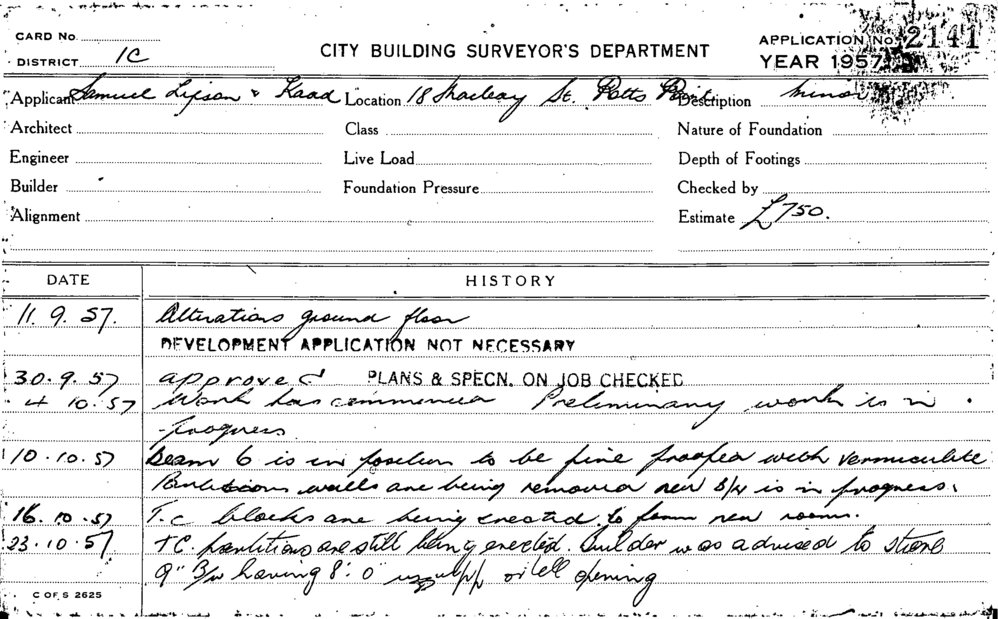 CARD No.
DISTRICT 1C
CITY BUILDING SURVEYOR'S DEPARTMENT
APPLICATION No. 2141
YEAR 1957
Applicant Samuel Lipson & Kaad Location 18 Macleay St. Potts Point Description Minor
Architect Class Nature of Foundation
Engineer Live Load Depth of Footings
Builder Foundation Pressure Checked by
Alignment Estimate £750.
DATE HISTORY
11.9.57. Alterations ground floor
DEVELOPMENT APPLICATION NOT NECESSARY
30.9.57 approved PLANS & SPECN. ON JOB CHECKED
4 10.57 Work has commenced Preliminary work is in
progress
10.10.57 Beam 6 is in position to be fire proofed with vermiculite
Partition walls are being removed new B/W is in progress.
16.10.57 T.C blocks are being erected to form new rooms.
23.10.57 T.C. partitions are still being erected. Builder was advised to
9" B/W having 8'.0" opening
C OF S 2625